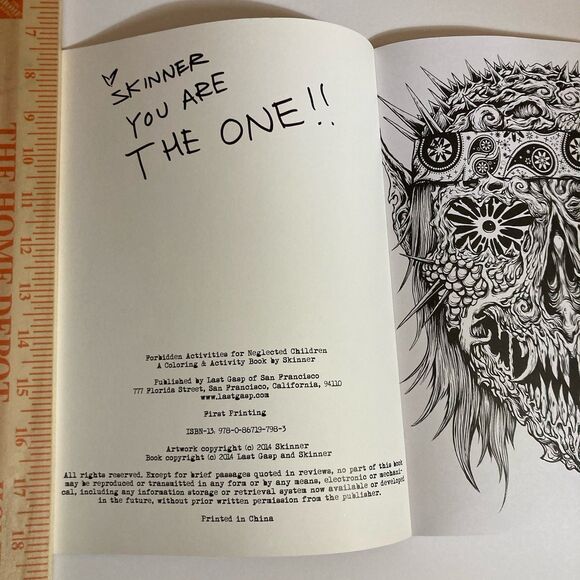 ♥ SKINNER
YOU ARE
THE ONE!!
Forbidden Activities for Neglected Children
A Coloring & Activity Book by Skinner
Published by Last Gasp of San Francisco
777 Florida Street, San Francisco, California, 94110
www.lastgasp.com
First Printing
ISBN-13. 978-0-86719-798-3
Artwork copyright (c) 2014 Skinner
Book copyright (c) 2014 Last Gasp and Skinner
All rights reserved. Except for brief passages quoted in reviews, no part of this book
may be reproduced or transmitted in any form or by any means, electronic or mechani-
cal, including any information storage or retrieval system now available or developed
in the future, without prior written permission from the publisher.
Printed in China
THE HOME DEPOT
7
8
9
10
11
12
13
14
15
16
17
18
17
18